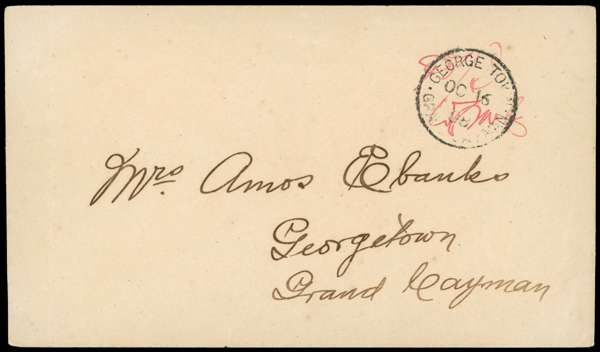 GEORGE TOWN · GRAND CAYMAN
OC 16
08
Mrs. Amos Ebanks
Georgetown
Grand Cayman